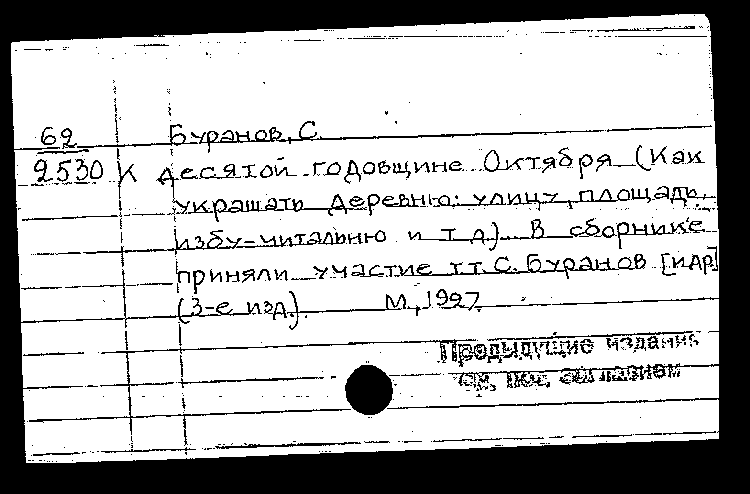 62
2530
Буранов, С.
К десятой годовщине Октября (Как
украшать деревню: улицу, площадь,
избу-читальню и т.д.). В сборнике
приняли участие т.т. С. Буранов [и др]
(3-е изд.). М., 1927.
Предыдущие издания
см. под заглавием